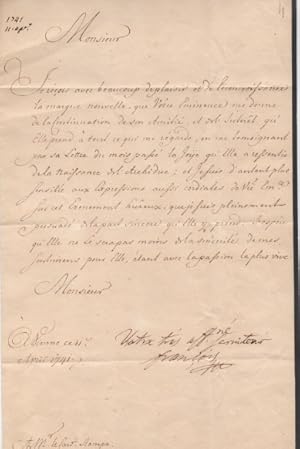 1741
11. apr.
Monsieur
Je reçois avec beaucoup de plaisir et de reconnoissance
la marque nouvelle, que Vôtre Eminence me donne
de la continuation de son Amitié, et de l'interêt, qu'
Elle prend à tout ce qui me regarde, en me temoignant
par sa Lettre du mois passé la Joye qu'Elle a ressentie
de la naissance de l'Archiduc; et je suis d'autant plus
sensible aux Expressions aussi cordiales de Vôtre Em.ce
sur cet Evenement heureux, que je suis pleinement
persuadé de la part sincere qu'Elle y prend. J'espere
qu'Elle ne le sera pas moins de la sincerité de mes
sentimens pour Elle, étant avec la passion la plus vive
Monsieur
à Vienne ce 11.e
Avril 1741.
Votre tres aff.né serviteur
françois
à Mr. le Card.